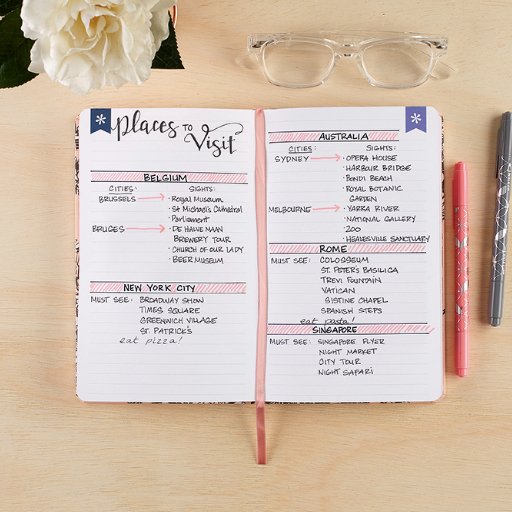 Places to
Visit
BELGIUM
CITIES: SIGHTS:
BRUSSELS → · Royal Museum
· St Michael's Cathedral
· Parliament
BRUGES → · DE HALVE MAAN
BREWERY TOUR
· CHURCH OF OUR LADY
· BEER MUSEUM
NEW YORK CITY
MUST SEE: BROADWAY SHOW
TIMES SQUARE
GREENWICH VILLAGE
ST. PATRICK'S
eat pizza!
AUSTRALIA
CITIES: SIGHTS:
SYDNEY → · OPERA HOUSE
· HARBOUR BRIDGE
· BONDI BEACH
· ROYAL BOTANIC
GARDEN
MELBOURNE → · YARRA RIVER
· NATIONAL GALLERY
· ZOO
· HEALESVILLE SANCTUARY
ROME
MUST SEE: COLOSSEUM
ST. PETER'S BASILICA
TREVI FOUNTAIN
VATICAN
SISTINE CHAPEL
SPANISH STEPS
eat pasta!
SINGAPORE
MUST SEE: SINGAPORE FLYER
NIGHT MARKET
CITY TOUR
NIGHT SAFARI